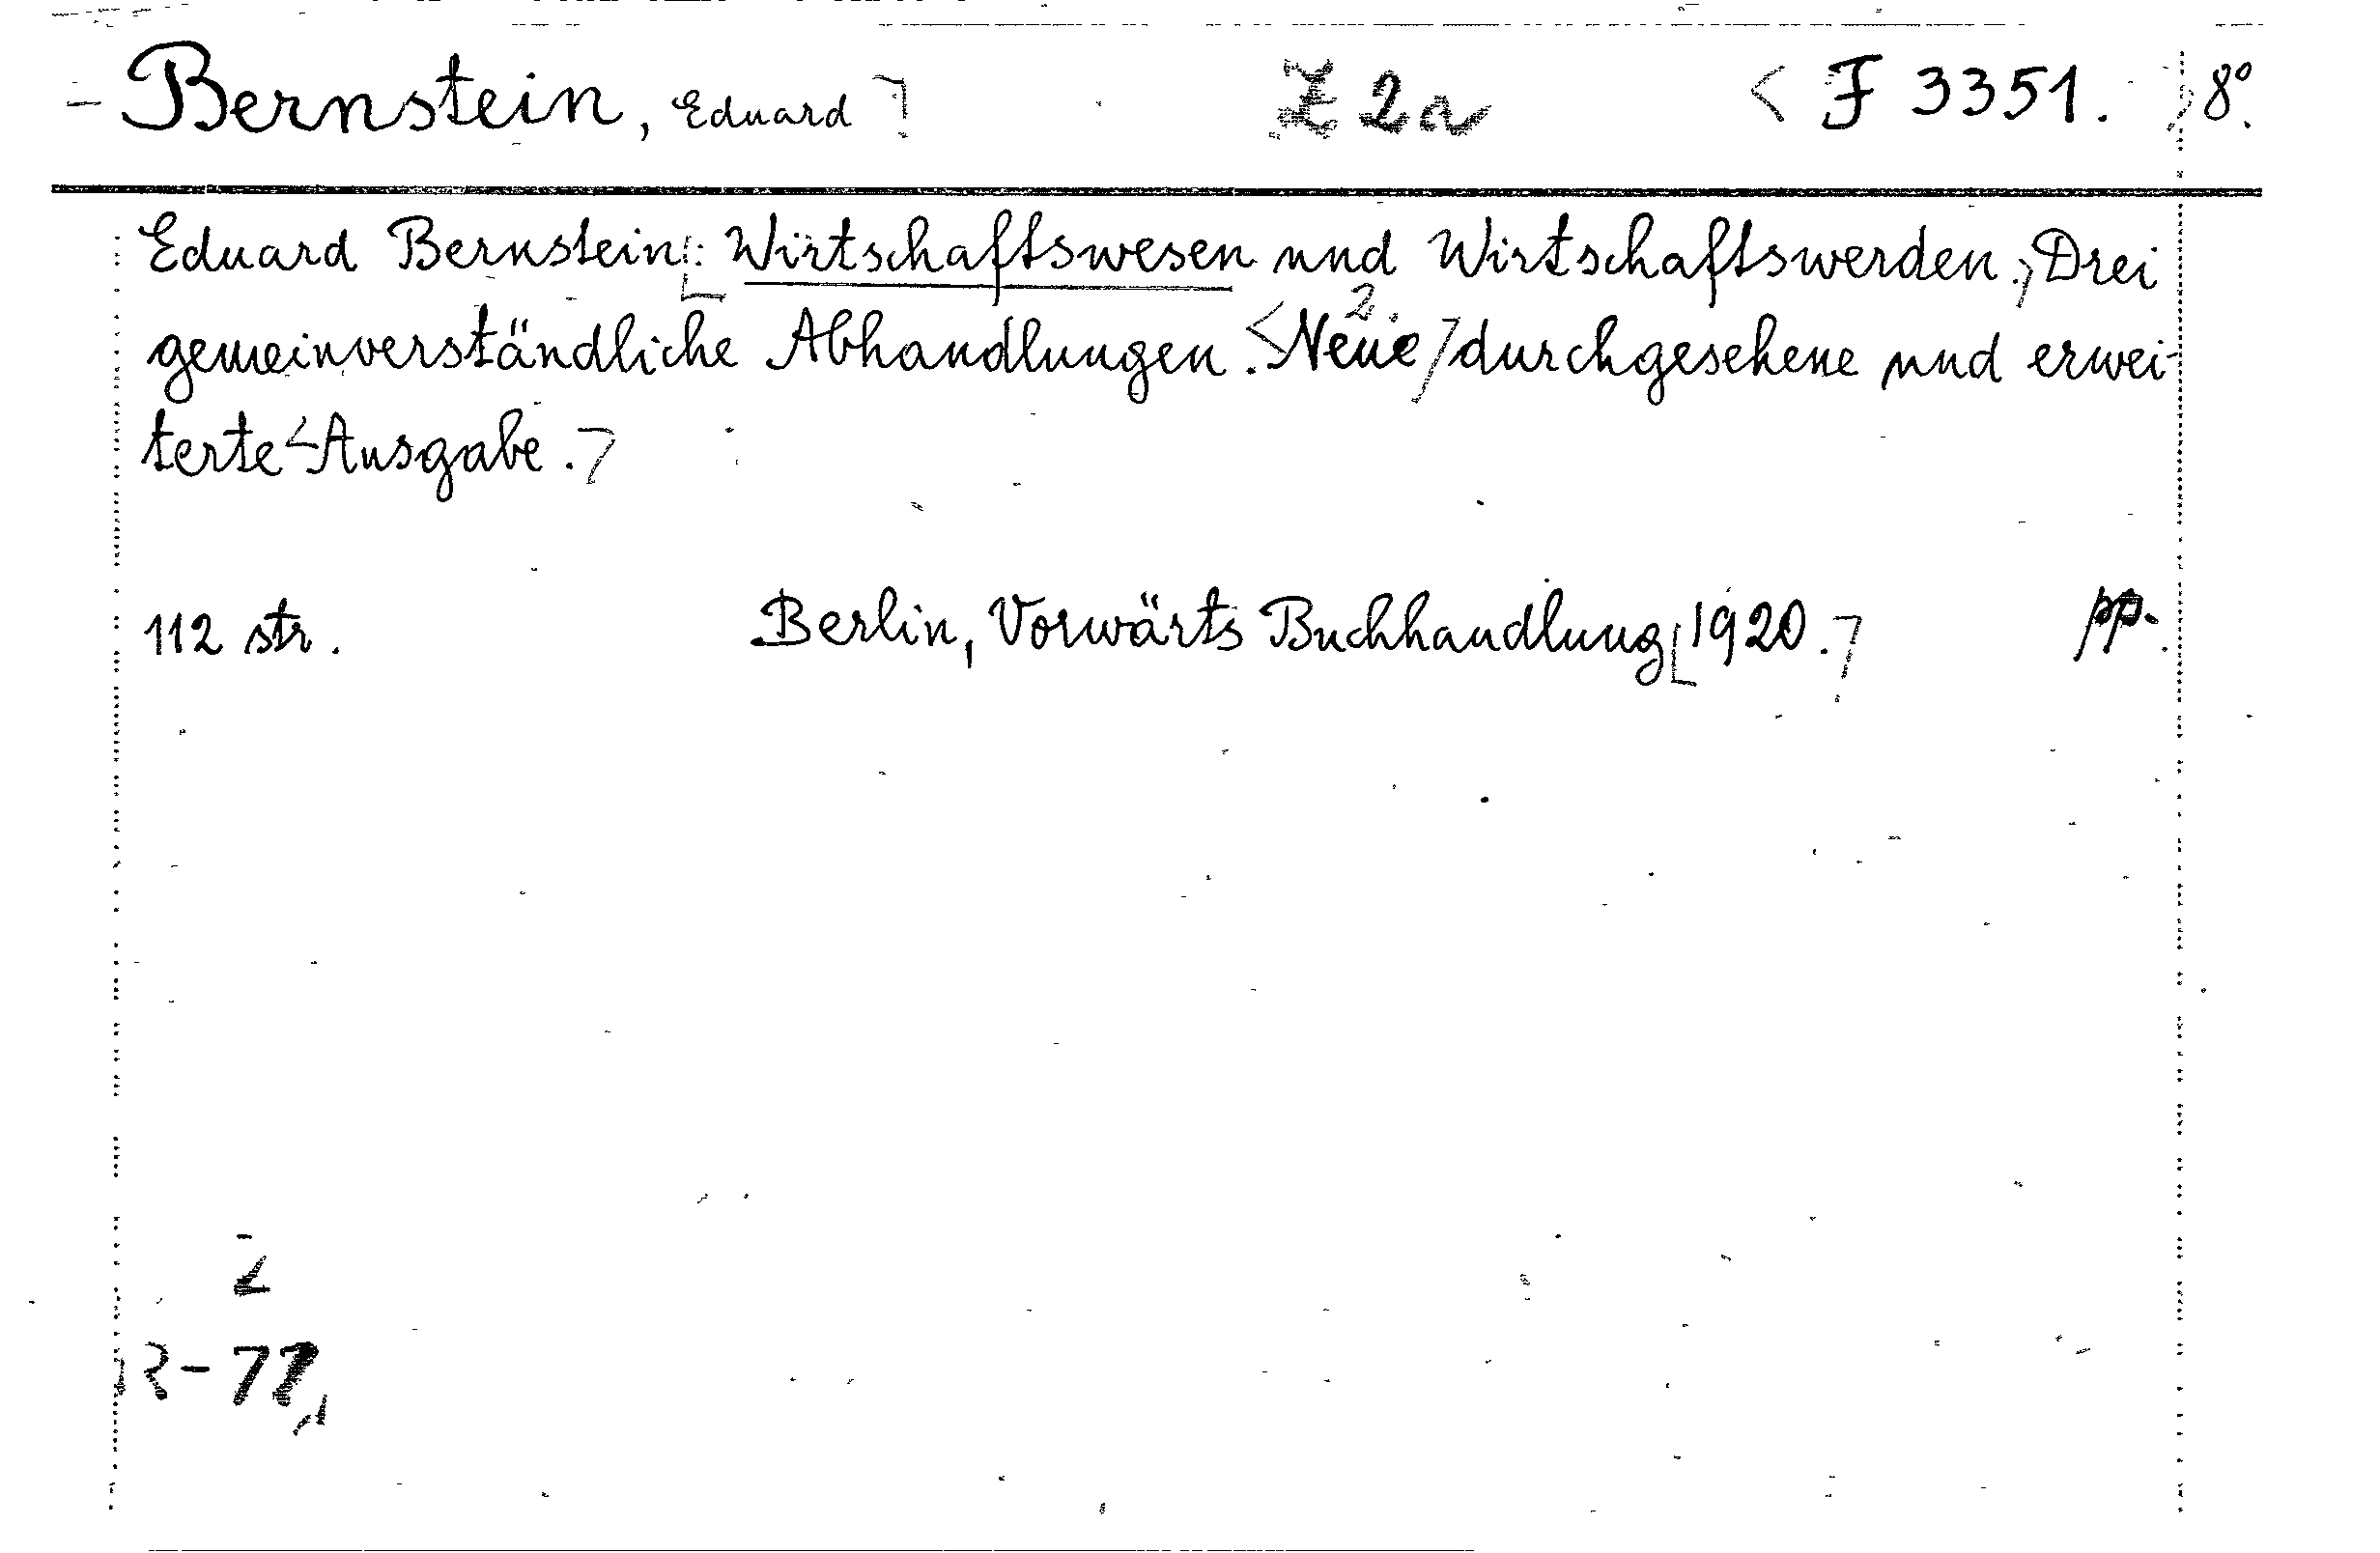 Bernstein, Eduard Z 2a F 3351. 8°.
Eduard Bernstein: Wirtschaftswesen und Wirtschaftswerden. Drei
gemeinverständliche Abhandlungen. 2. Neue durchgesehene und erwei-
terte Ausgabe.
112 str. Berlin, Vorwärts Buchhandlung 1920. pp.